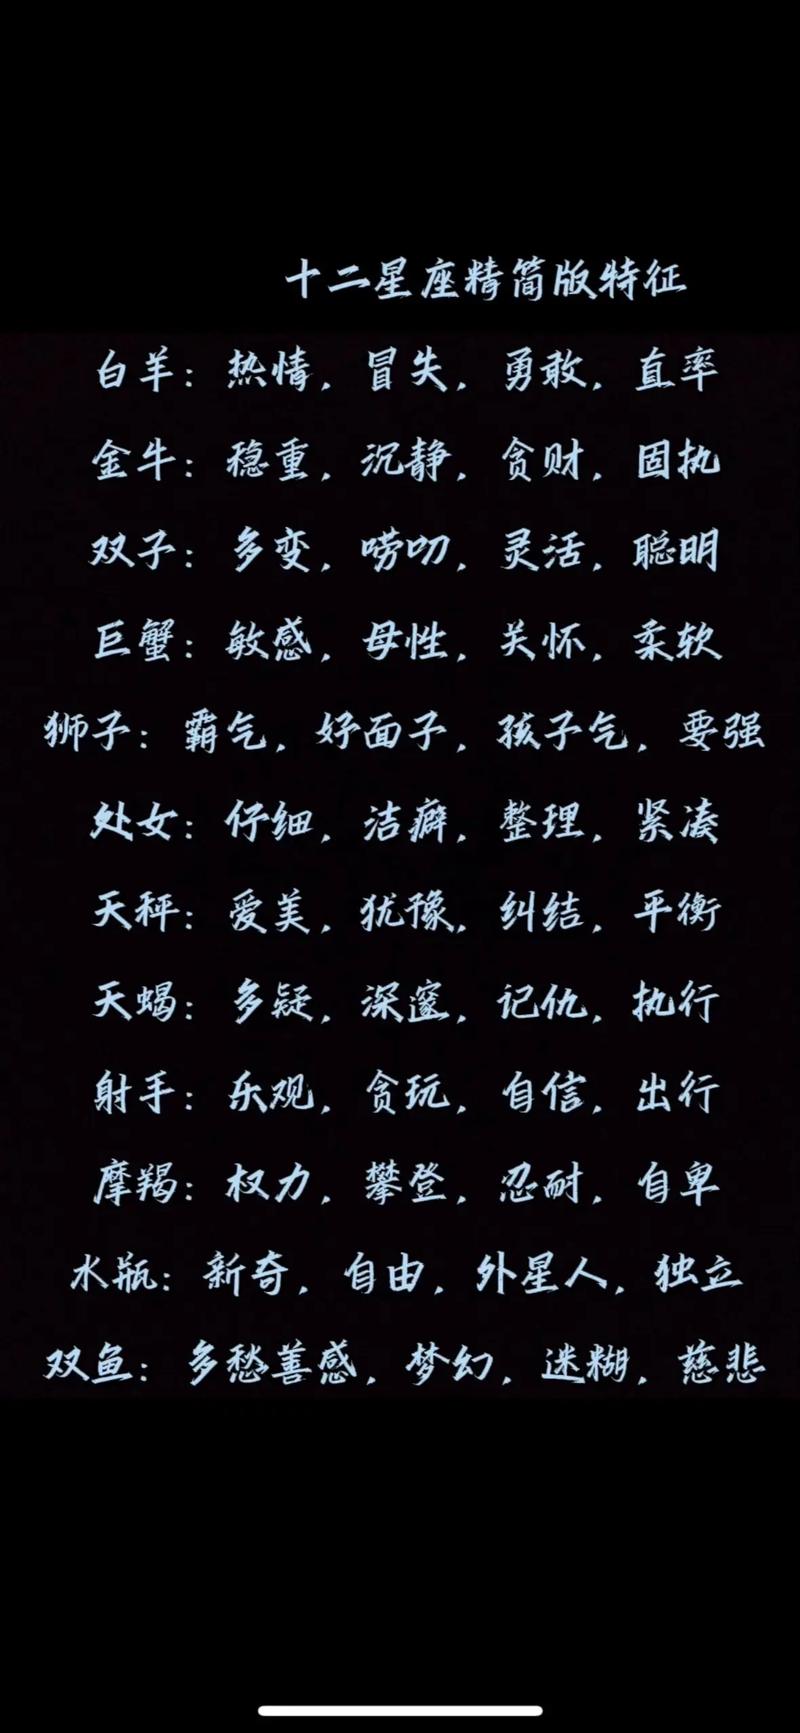 十二星座精简版特征
白羊：热情，冒失，勇敢，直率
金牛：稳重，沉静，贪财，固执
双子：多变，唠叨，灵活，聪明
巨蟹：敏感，母性，关怀，柔软
狮子：霸气，好面子，孩子气，要强
处女：仔细，洁癖，整理，紧凑
天秤：爱美，犹豫，纠结，平衡
天蝎：多疑，深邃，记仇，执行
射手：乐观，贪玩，自信，出行
摩羯：权力，攀登，忍耐，自卑
水瓶：新奇，自由，外星人，独立
双鱼：多愁善感，梦幻，迷糊，慈悲